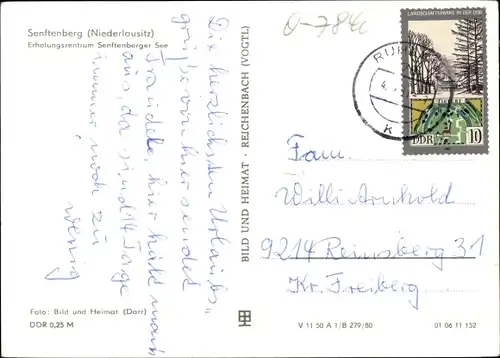 Senftenberg (Niederlausitz)
Erholungszentrum Senftenberger See
Die herzlichsten Urlaubs„
grüße von hier sendet
Traudele, hier hält man's
aus, da sind 14 Tage
immer noch zu
wenig
Foto: Bild und Heimat (Darr)
DDR 0,25 M
BILD UND HEIMAT · REICHENBACH (VOGTL)
0-784c
LANDSCHAFTSPARKS IN DER DDR
DDR 10
Fam.
Willi Arnhold
9214 Reinsberg 31
Kr. Freiberg
V 11 50 A 1/B 279/80
01 06 11 152